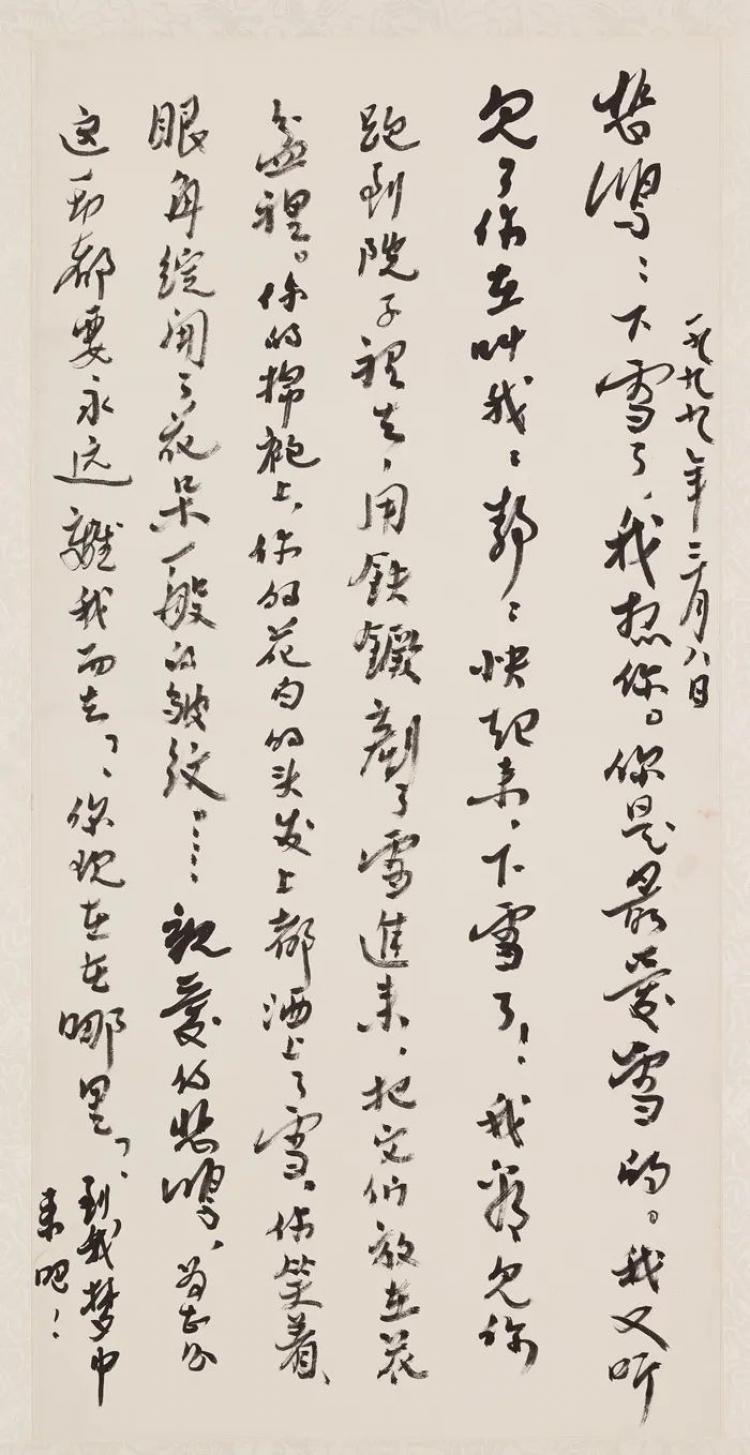 一九九九年三月八日
悲鸿：下雪了，我想你。你是最爱雪的。我又听
见了你在叫我：静：快起来，下雪了！我看见你
跑到院子裡去，用铁镢剷了雪進来，把它们放在花
盆裡。你的棉袍上、你的花白的头发上都洒上了雪，你笑着，
眼角綻開了花朵一般的皱纹。……親爱的悲鸿，为甚么
这一切都要永远離我而去？你现在在哪里？到我梦中
来吧！